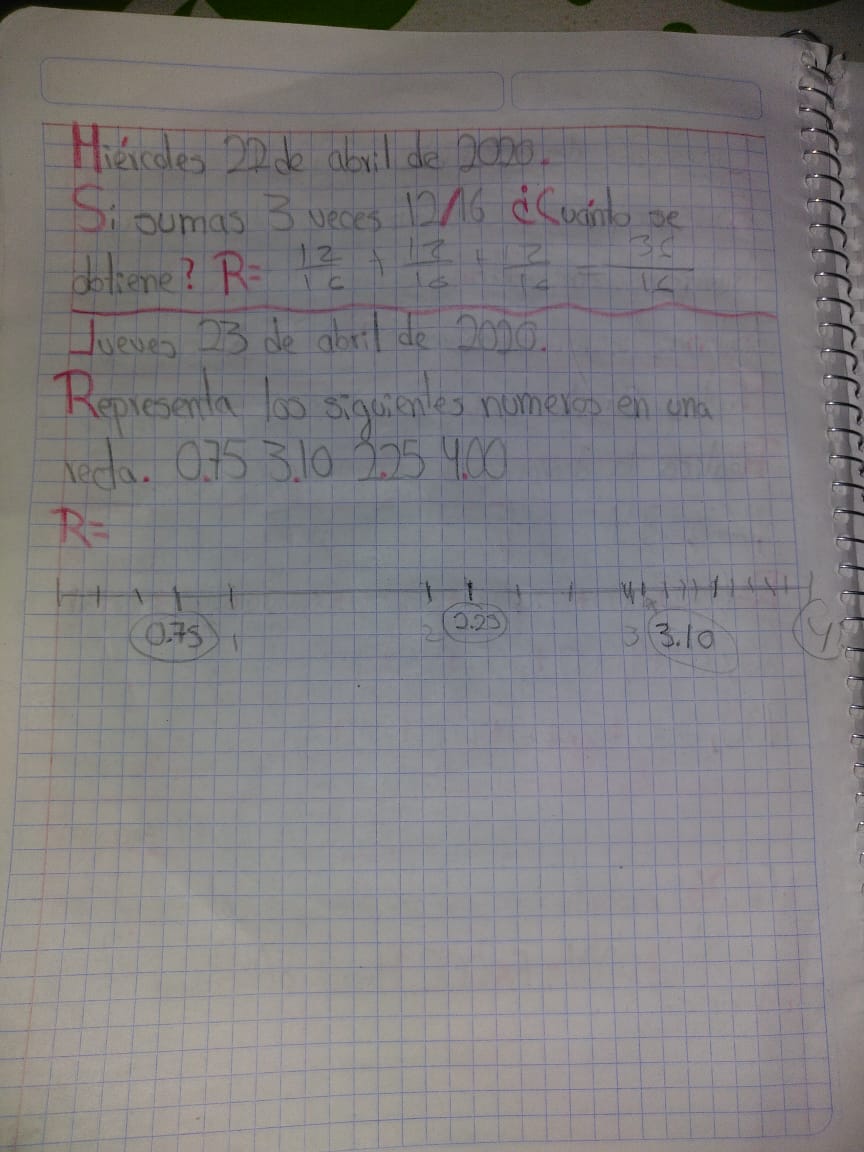 Miércoles 22 de abril de 2020.
Si sumas 3 veces 12/16 ¿Cuánto se
obtiene? R= 12/16 + 12/16 + 12/16 = 36/16
Jueves 23 de abril de 2020.
Representa los siguientes numeros en una
recta. 0.75 3.10 2.25 4.00
R=
0.75 1 2 2.25 3 3.10 4